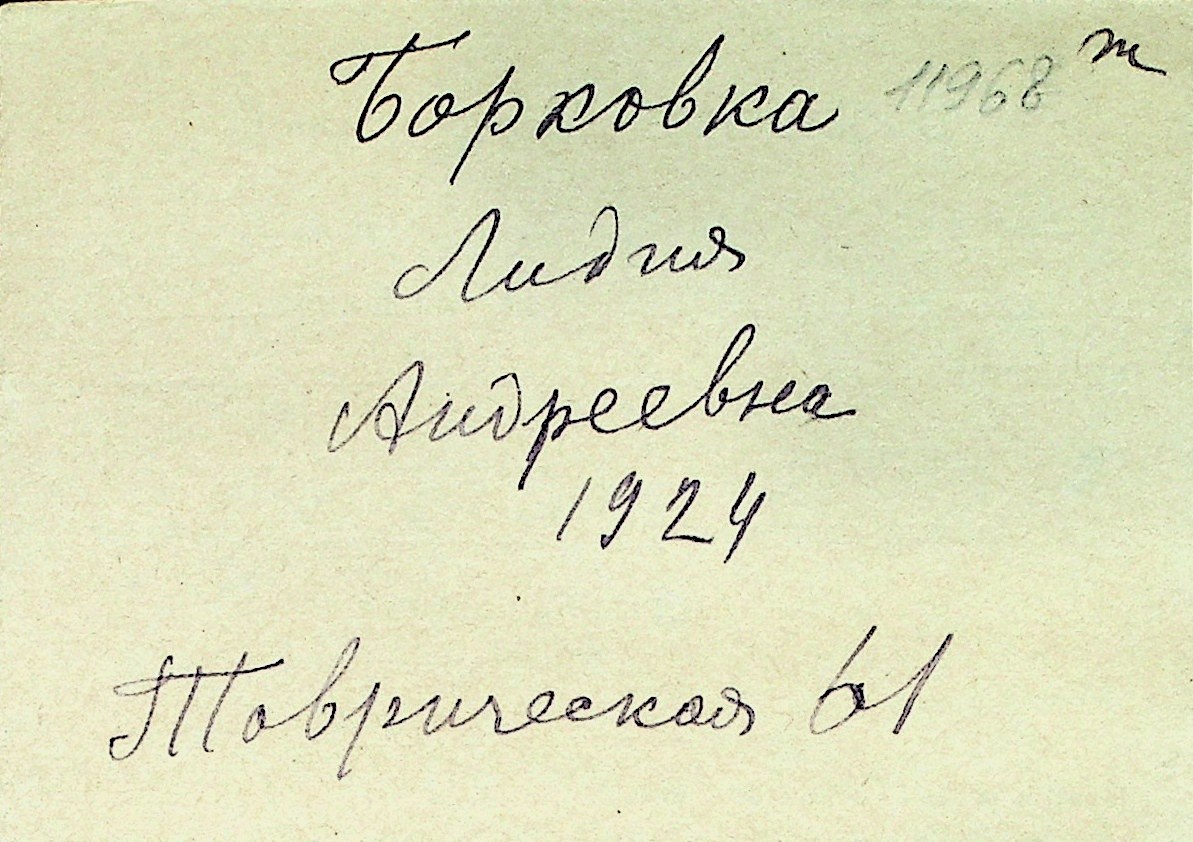 Борковка 11968 т
Лидия
Андреевна
1924
Таврическая 61